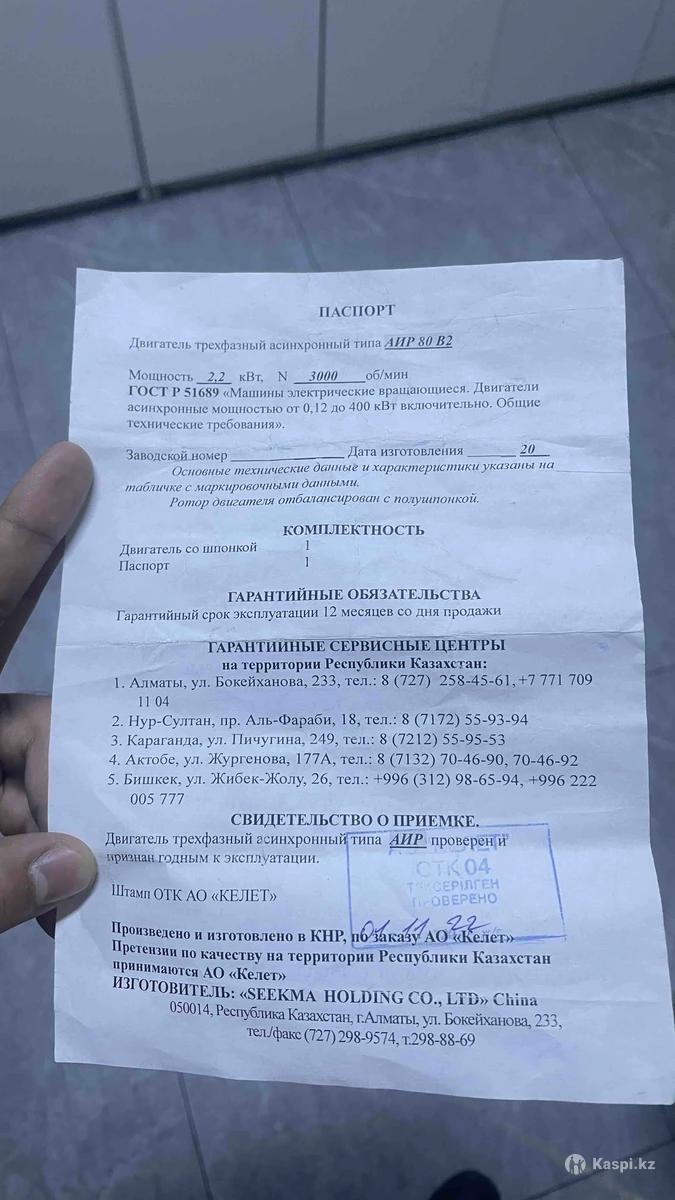 ПАСПОРТ
Двигатель трехфазный асинхронный типа АИР 80 В2
Мощность 2,2 кВт, N 3000 об/мин
ГОСТ Р 51689 «Машины электрические вращающиеся. Двигатели
асинхронные мощностью от 0,12 до 400 кВт включительно. Общие
технические требования».
Заводской номер ____________ Дата изготовления ______ 20
Основные технические данные и характеристики указаны на
табличке с маркировочными данными.
Ротор двигателя отбалансирован с полушпонкой.
КОМПЛЕКТНОСТЬ
Двигатель со шпонкой 1
Паспорт 1
ГАРАНТИЙНЫЕ ОБЯЗАТЕЛЬСТВА
Гарантийный срок эксплуатации 12 месяцев со дня продажи
ГАРАНТИЙНЫЕ СЕРВИСНЫЕ ЦЕНТРЫ
на территории Республики Казахстан:
1. Алматы, ул. Бокейханова, 233, тел.: 8 (727) 258-45-61, +7 771 709
11 04
2. Нур-Султан, пр. Аль-Фараби, 18, тел.: 8 (7172) 55-93-94
3. Караганда, ул. Пичугина, 249, тел.: 8 (7212) 55-95-53
4. Актобе, ул. Жургенова, 177А, тел.: 8 (7132) 70-46-90, 70-46-92
5. Бишкек, ул. Жибек-Жолу, 26, тел.: +996 (312) 98-65-94, +996 222
005 777
СВИДЕТЕЛЬСТВО О ПРИЕМКЕ.
Двигатель трехфазный асинхронный типа АИР проверен и
признан годным к эксплуатации.
СТК 04
ТЕКСЕРІЛГЕН
ПРОВЕРЕНО
01.11.22
Штамп ОТК АО «КЕЛЕТ»
Произведено и изготовлено в КНР, по заказу АО «Келет»
Претензии по качеству на территории Республики Казахстан
принимаются АО «Келет»
ИЗГОТОВИТЕЛЬ: «SEEKMA HOLDING CO., LTD» China
050014, Республика Казахстан, г.Алматы, ул. Бокейханова, 233,
тел./факс (727) 298-9574, т.298-88-69
Kaspi.kz